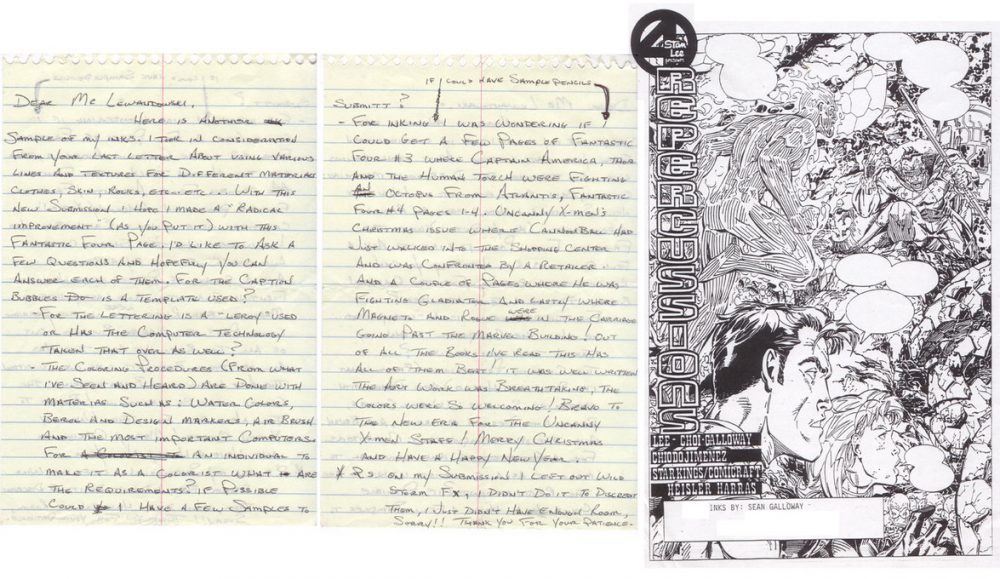 Dear Mr Lewandowski,
Here is another
sample of my inks. I took in consideration
from your last letter about using various
lines and textures for different materials
clothes, skin, rocks, etc... etc... With this
new submission I hope I made a "radical
improvement" (as you put it) with this
Fantastic Four page. I'd like to ask a
few questions and hopefully you can
answer each of them. For the caption
bubbles do is a template used?
- For the lettering is a "Leroy" used
or has the computer technology
taken that over as well?
- The coloring procedures (from what
I've seen and heard) are done with
materias such as: water colors,
Berol and design markers, air brush
and the most important computers.
For an individual to
make it as a colorist what are
the requirements? If possible
could I have a few samples to
If I could have sample pencils
submitt?
- For inking I was wondering if
could get a few pages of Fantastic
Four #3 where Captain America, Thor
and the Human Torch were fighting
an Octobus from Atlantis, Fantastic
Four #4 pages 1-4. Uncanny X-men's
Christmas issue where Cannonball had
just walked into the shopping center
and was confronted by a retailer.
And a couple of pages where he was
fighting Gladiator and lastly where
Magneto and Rogue were in the carriage
going past the Marvel Building! Out
of all the books I've read this has
all of them beat! It was well written
the art work was breathtaking, the
colors were so welcoming! Bravo to
the new era for the Uncanny
X-men staff! Merry Christmas
and have a Happy New Year.
* P.S. on my submission I left out Wild
Storm FX, I didn't do it to discredit
them, I just didn't have enough room,
sorry!! Thank you for your patience.
4
Stan
Lee
presents
REPERCUSSIONS
LEE - CHOI GALLOWAY
DHODOJIMENEZ
STARKINGS/COMICRAFT
HEISLER HARRAS
INKS BY: SEAN GALLOWAY